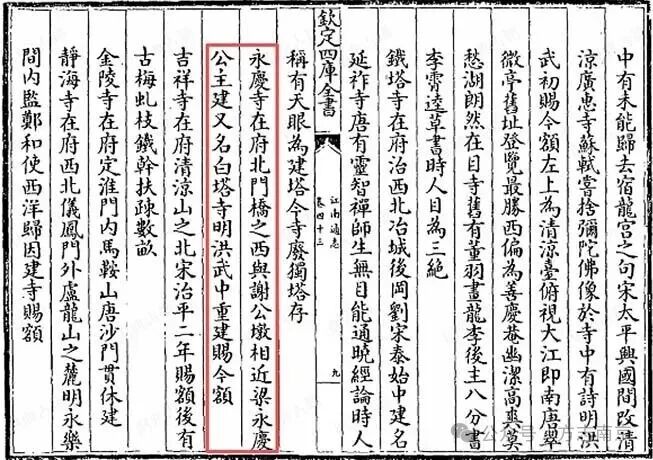 中有未能歸去宿龍宫之句宋太平興國間改清
涼廣惠寺蘇軾嘗捨彌陀佛像於寺中有詩明洪
武初賜今額左上為清涼臺俯視大江即南唐翠
微亭舊址登覽最勝西偏為善慶菴幽潔高爽莫
愁湖朗然在目寺舊有董羽畫龍李後主八分書
李霄逺草書時人目為三絶
鐵塔寺在府治西北冶城後岡劉宋泰始中建名
延祚寺唐有靈智禪師生無目能通曉經論時人
欽定四庫全書
江南通志
卷四十三
九
稱有天眼為建塔今寺廢獨塔存
永慶寺在府北門橋之西與謝公墩相近梁永慶
公主建又名白塔寺明洪武中重建賜今額
吉祥寺在府清涼山之北宋治平二年賜額後有
古梅虬枝鐵幹扶疎數畝
金陵寺在府定淮門内馬鞍山唐沙門貫休建
靜海寺在府西北儀鳳門外盧龍山之麓明永樂
間内監鄭和使西洋歸因建寺賜額
公众号